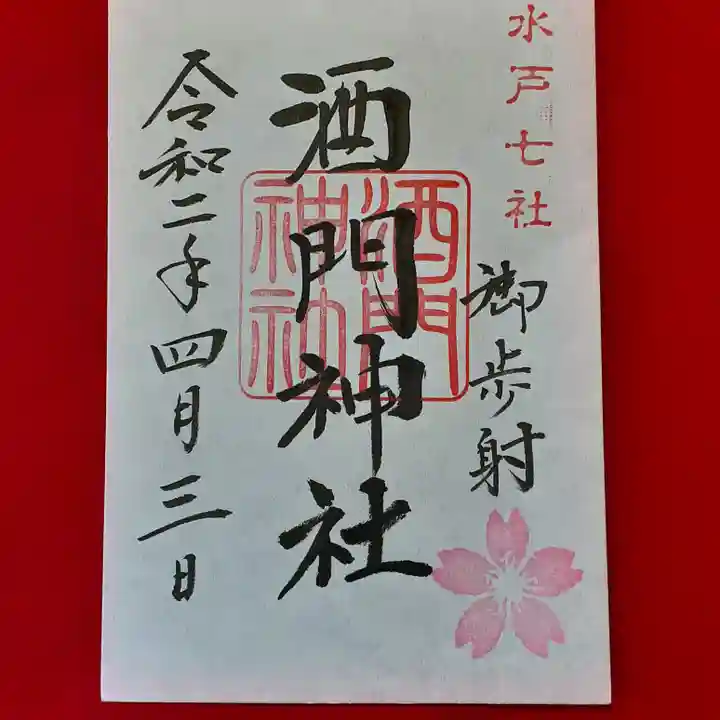 水戸七社
御歩射
酒門神社
酒門神社
令和二年四月三日